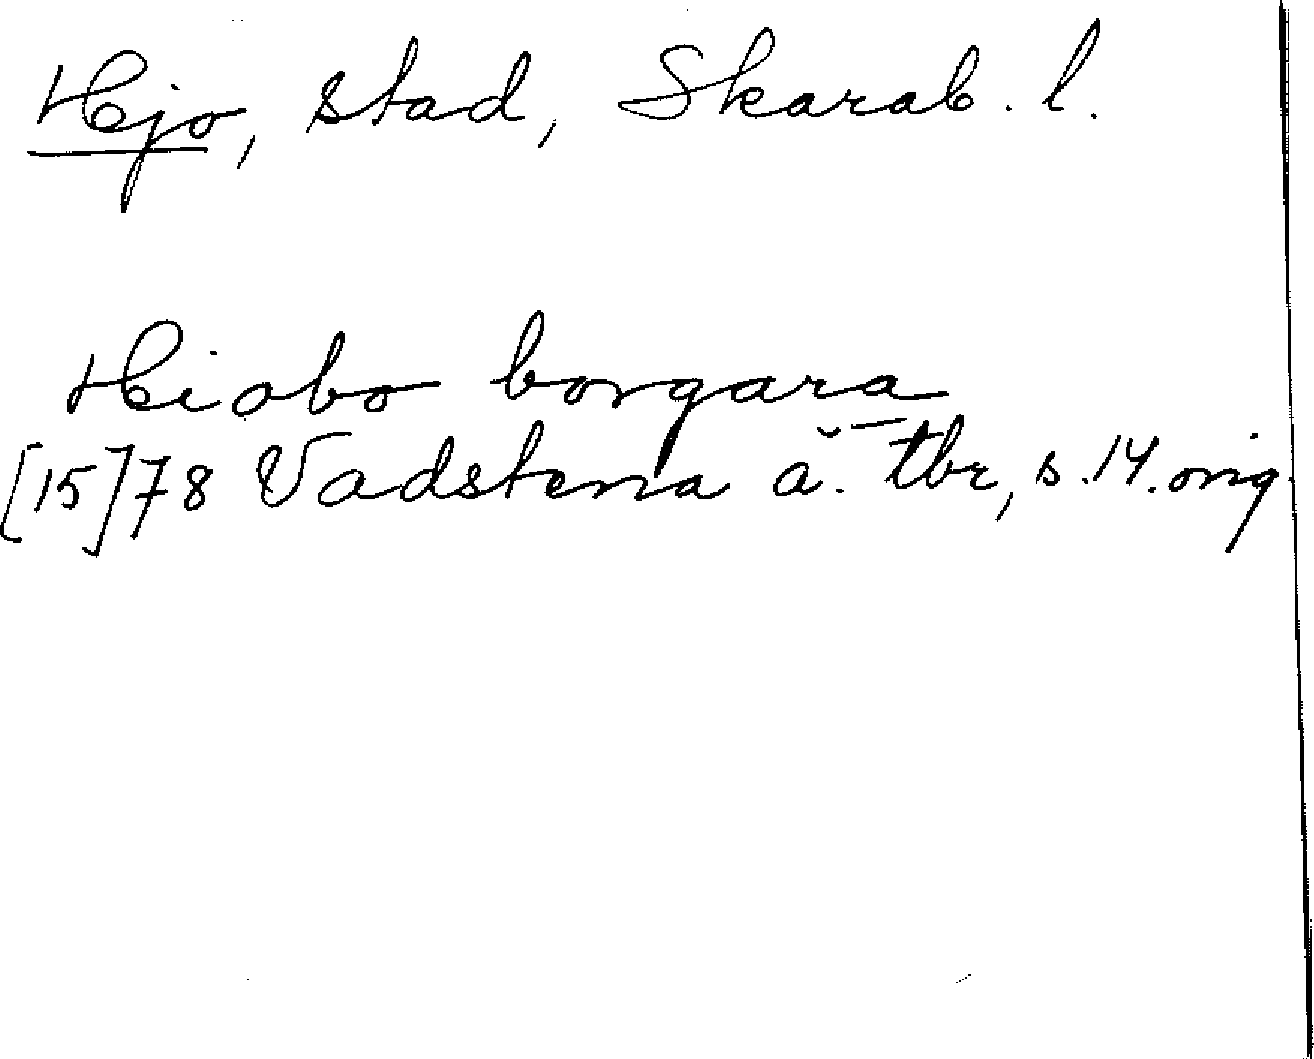 Hjo, stad, Skarab. l.
Hiobo borgara
[15]78 Vadstena ä. tbr, s. 14. orig.